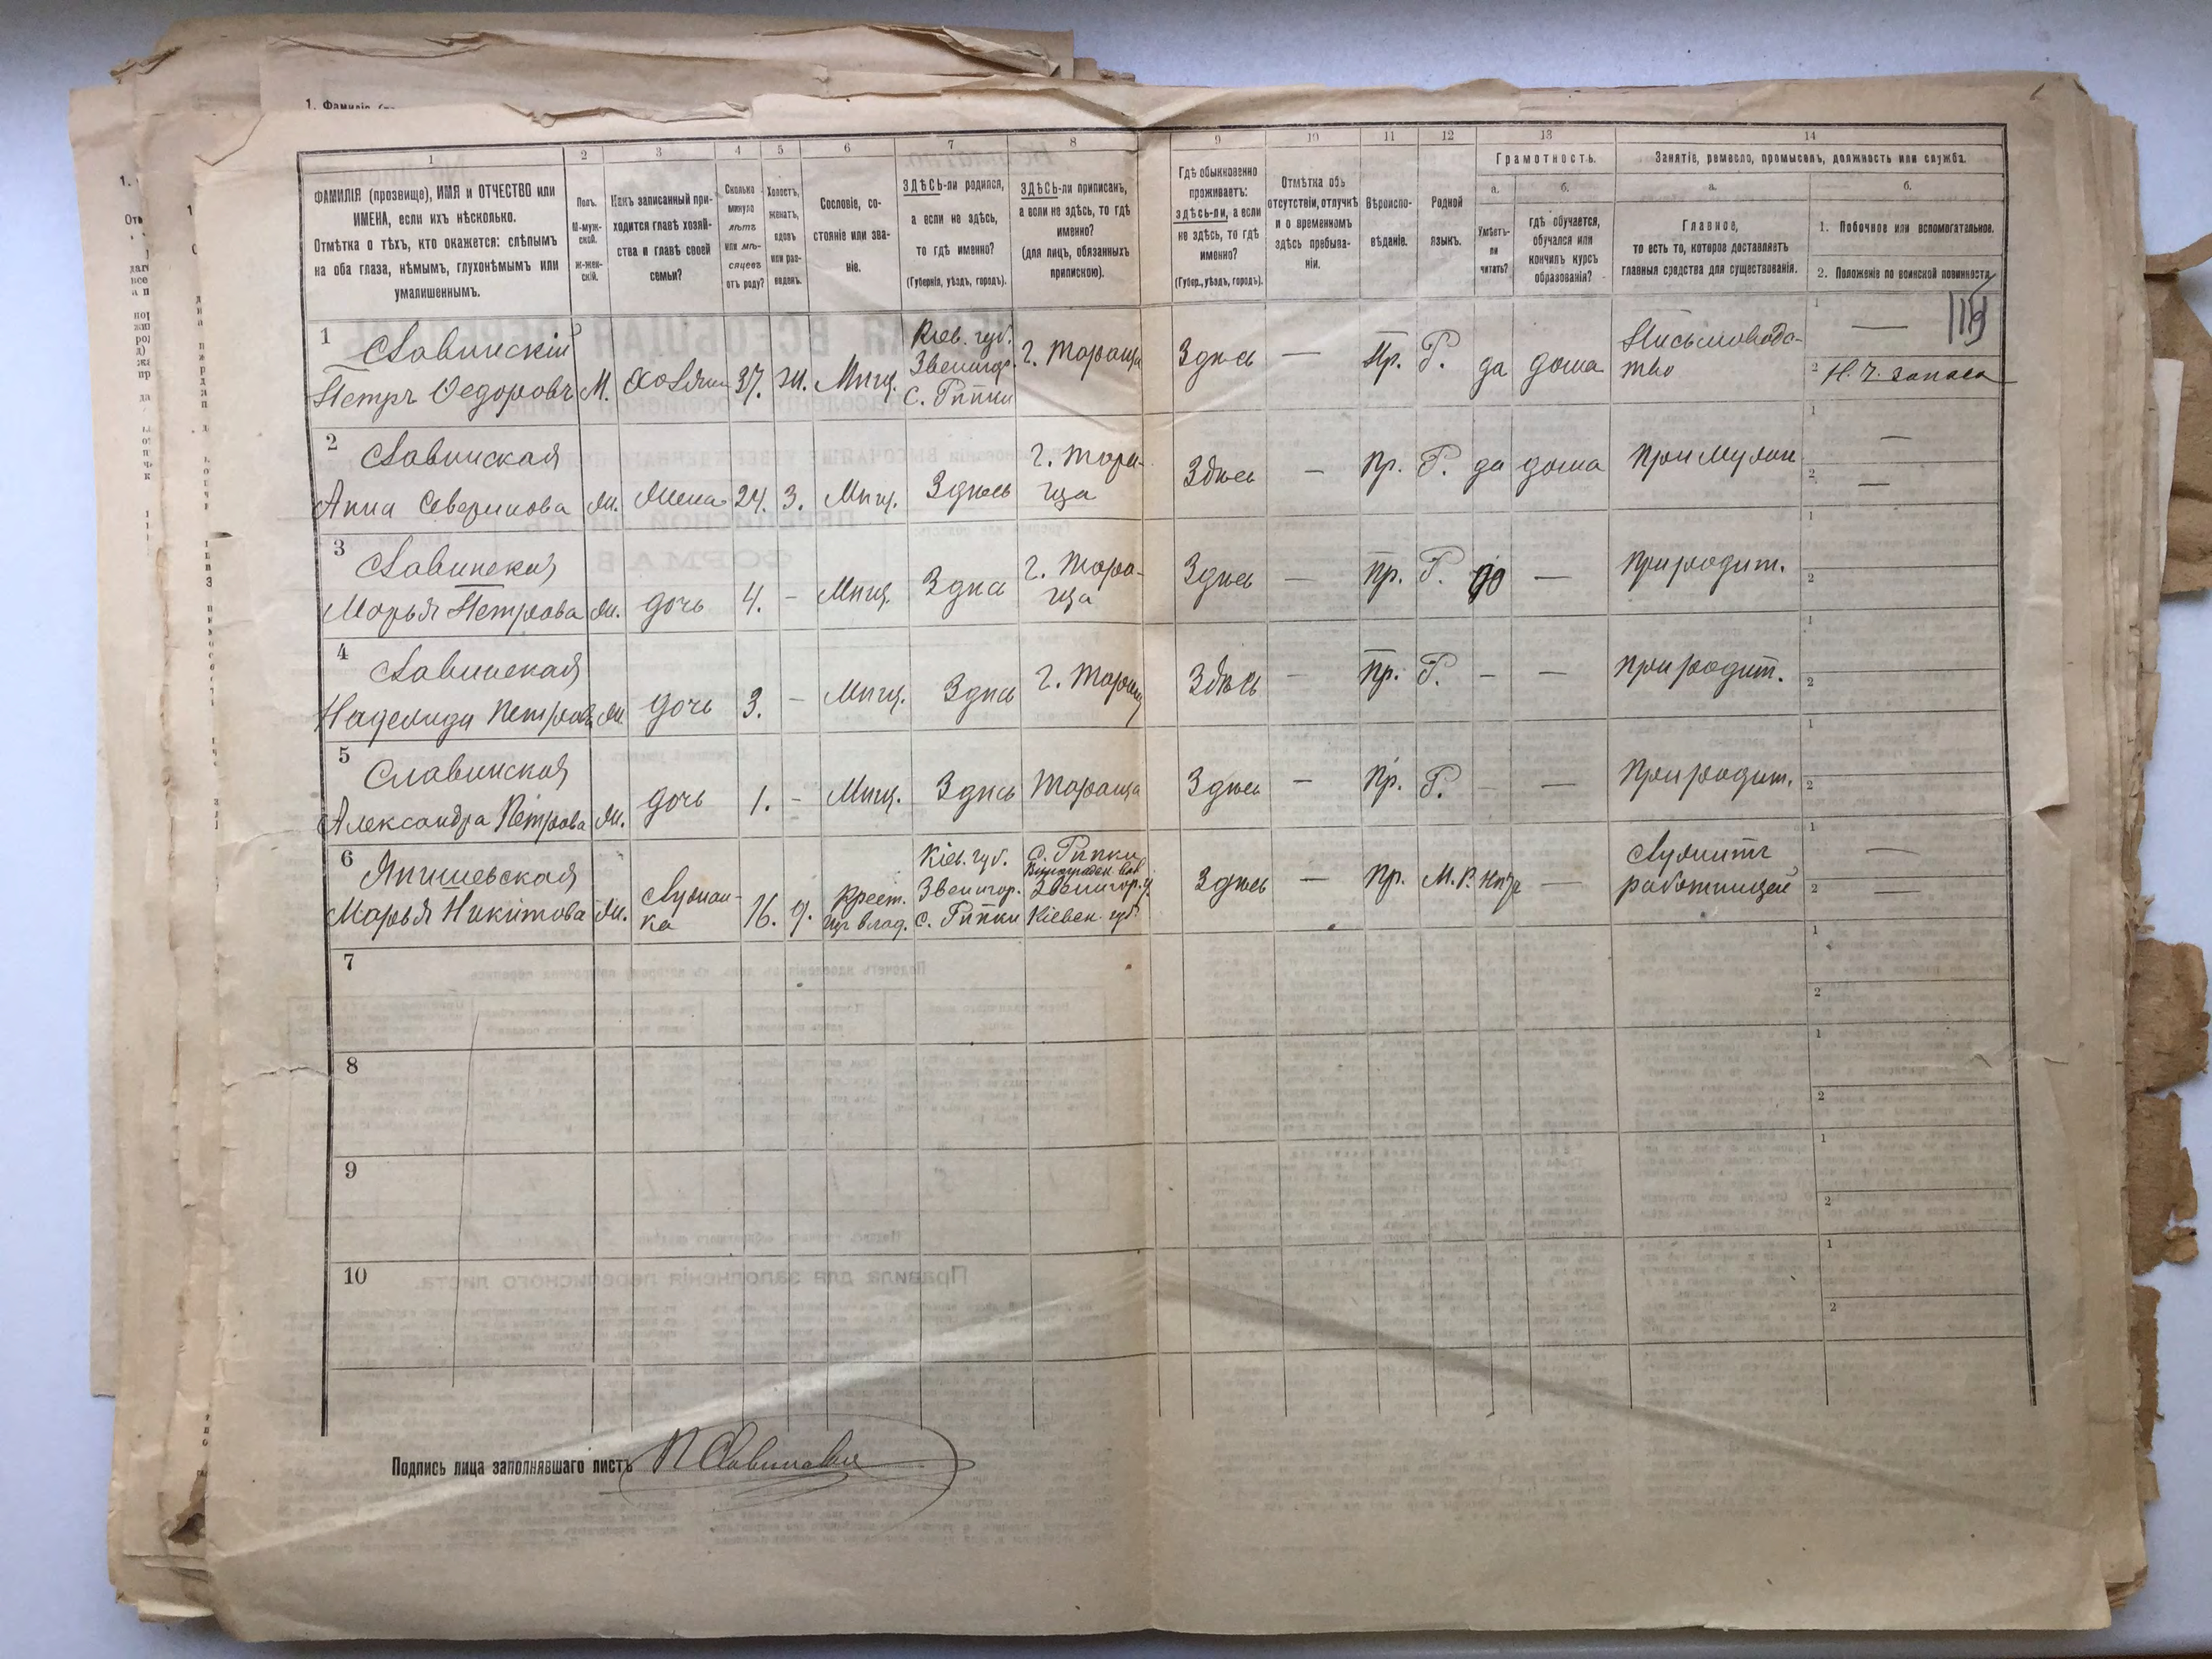 1. Фамилія
1 2 3 4 5 6 7 8 9 10 11 12 13 14
ФАМИЛІЯ (прозвище), ИМЯ и ОТЧЕСТВО или
ИМЕНА, если ихъ нѣсколько.
Отмѣтка о тѣхъ, кто окажется: слѣпымъ
на оба глаза, нѣмымъ, глухонѣмымъ или
умалишеннымъ.
Полъ.
М-муж-
ской.
Ж-жен-
скій.
Какъ записанный при-
ходится главѣ хозяй-
ства и главѣ своей
семьи?
Сколько
минуло
лѣтъ
или мѣ-
сяцевъ
отъ роду?
Холостъ,
женатъ,
вдовъ
или раз-
веденъ.
Сословіе, со-
стояніе или зва-
ніе.
ЗДѢСЬ-ли родился,
а если не здѣсь,
то гдѣ именно?
(Губернія, уѣздъ, городъ).
ЗДѢСЬ-ли приписанъ,
а если не здѣсь, то гдѣ
именно?
(для лицъ, обязанныхъ
припискою).
Гдѣ обыкновенно
проживаетъ:
здѣсь-ли, а если
не здѣсь, то гдѣ
именно?
(Губер., уѣздъ, городъ).
Отмѣтка объ
отсутствіи, отлучкѣ
и о временномъ
здѣсь пребыва-
ніи.
Вѣроиспо-
вѣданіе.
Родной
языкъ.
Грамотность.
а.
Умѣетъ-
ли
читать?
б.
гдѣ обучается,
обучался или
кончилъ курсъ
образованія?
Занятіе, ремесло, промыселъ, должность или служба.
а.
Главное,
то есть то, которое доставляетъ
главныя средства для существованія.
б.
1. Побочное или вспомогательное.
2. Положеніе по воинской повинности.
1
Славинскій
Петръ Федоровъ
М.
Хозяин
37.
Ж.
Мѣщ.
Кіев. губ.
Звенигор.
с. Рѣпки
г. Тараща
Здѣсь
—
Пр.
Р.
да
дома
Письмоводс-
тво
1 —
2 Н. Ч. запаса
2
Славинская
Анна Северинова
Ж.
Жена
24.
З.
Мѣщ.
Здѣсь
г. Тара-
ща
Здѣсь
—
Пр.
Р.
да
дома
При мужи
1 —
2 —
3
Славинская
Марья Петрова
Ж.
дочь
4.
-
Мѣщ.
Здѣсь
г. Тара-
ща
Здѣсь
—
Пр.
Р.
—
При родит.
1
2
4
Славинская
Надежда Петрова
Ж.
дочь
3.
-
Мѣщ.
Здѣсь
г. Тараща
Здѣсь
—
Пр.
Р.
-
—
При родит.
1
2
5
Славинская
Александра Петрова
Ж.
дочь
1.
-
Мѣщ.
Здѣсь
Тараща
Здѣсь
—
Пр.
Р.
-
—
При родит.
1
2
6
Марья Никитова
Ж.
Служан-
ка
16.
д.
Крест.
из влад.
Кіев. губ.
Звенигор.
с. Рѣпки
с. Рѣпки
Звенигор. у.
Кіевск. губ.
Здѣсь
—
Пр.
М.Р.
нѣт
—
Служитъ
работницей
1 —
2 —
7
1
2
8
1
2
9
1
2
10
1
2
Подпись лица заполнявшаго листъ П Славинскій